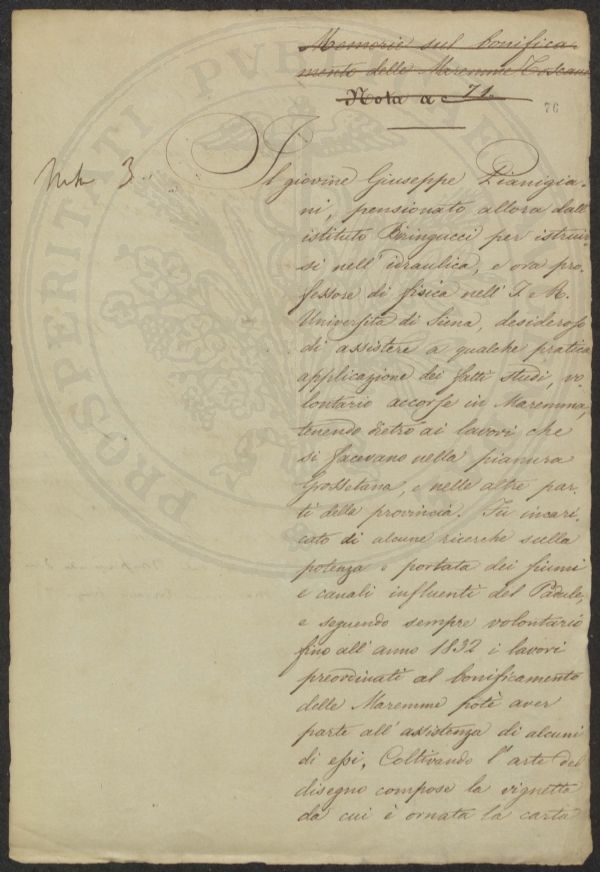 Memorie sul bonifica-
mento delle Maremme Toscane
Nota a c 71.
76
3.
Il giovine Giuseppe Pianigia-
ni, pensionato allora dall'
istituto Biringucci per istruir-
si nell'idraulica, e ora pro-
fessore di fisica nell'I. e R.
Università di Siena, desideroso
di assistere a qualche pratica
applicazione dei fatti studi, vo-
lontario accorse in Maremma,
tenendo dietro ai lavori che
si facevano nella pianura
Grossetana, e nelle altre par-
ti della provincia. Fu incari-
cato di alcune ricerche sulla
potenza e portata dei fiumi
e canali influenti del Padule,
e seguendo sempre volontario
fino all'anno 1832 i lavori
preordinati al bonificamento
delle Maremme potè aver
parte all'assistenza di alcuni
di essi. Coltivando l'arte del
disegno compose la vignetta
da cui è ornata la carta
PROSPERITATI PVB